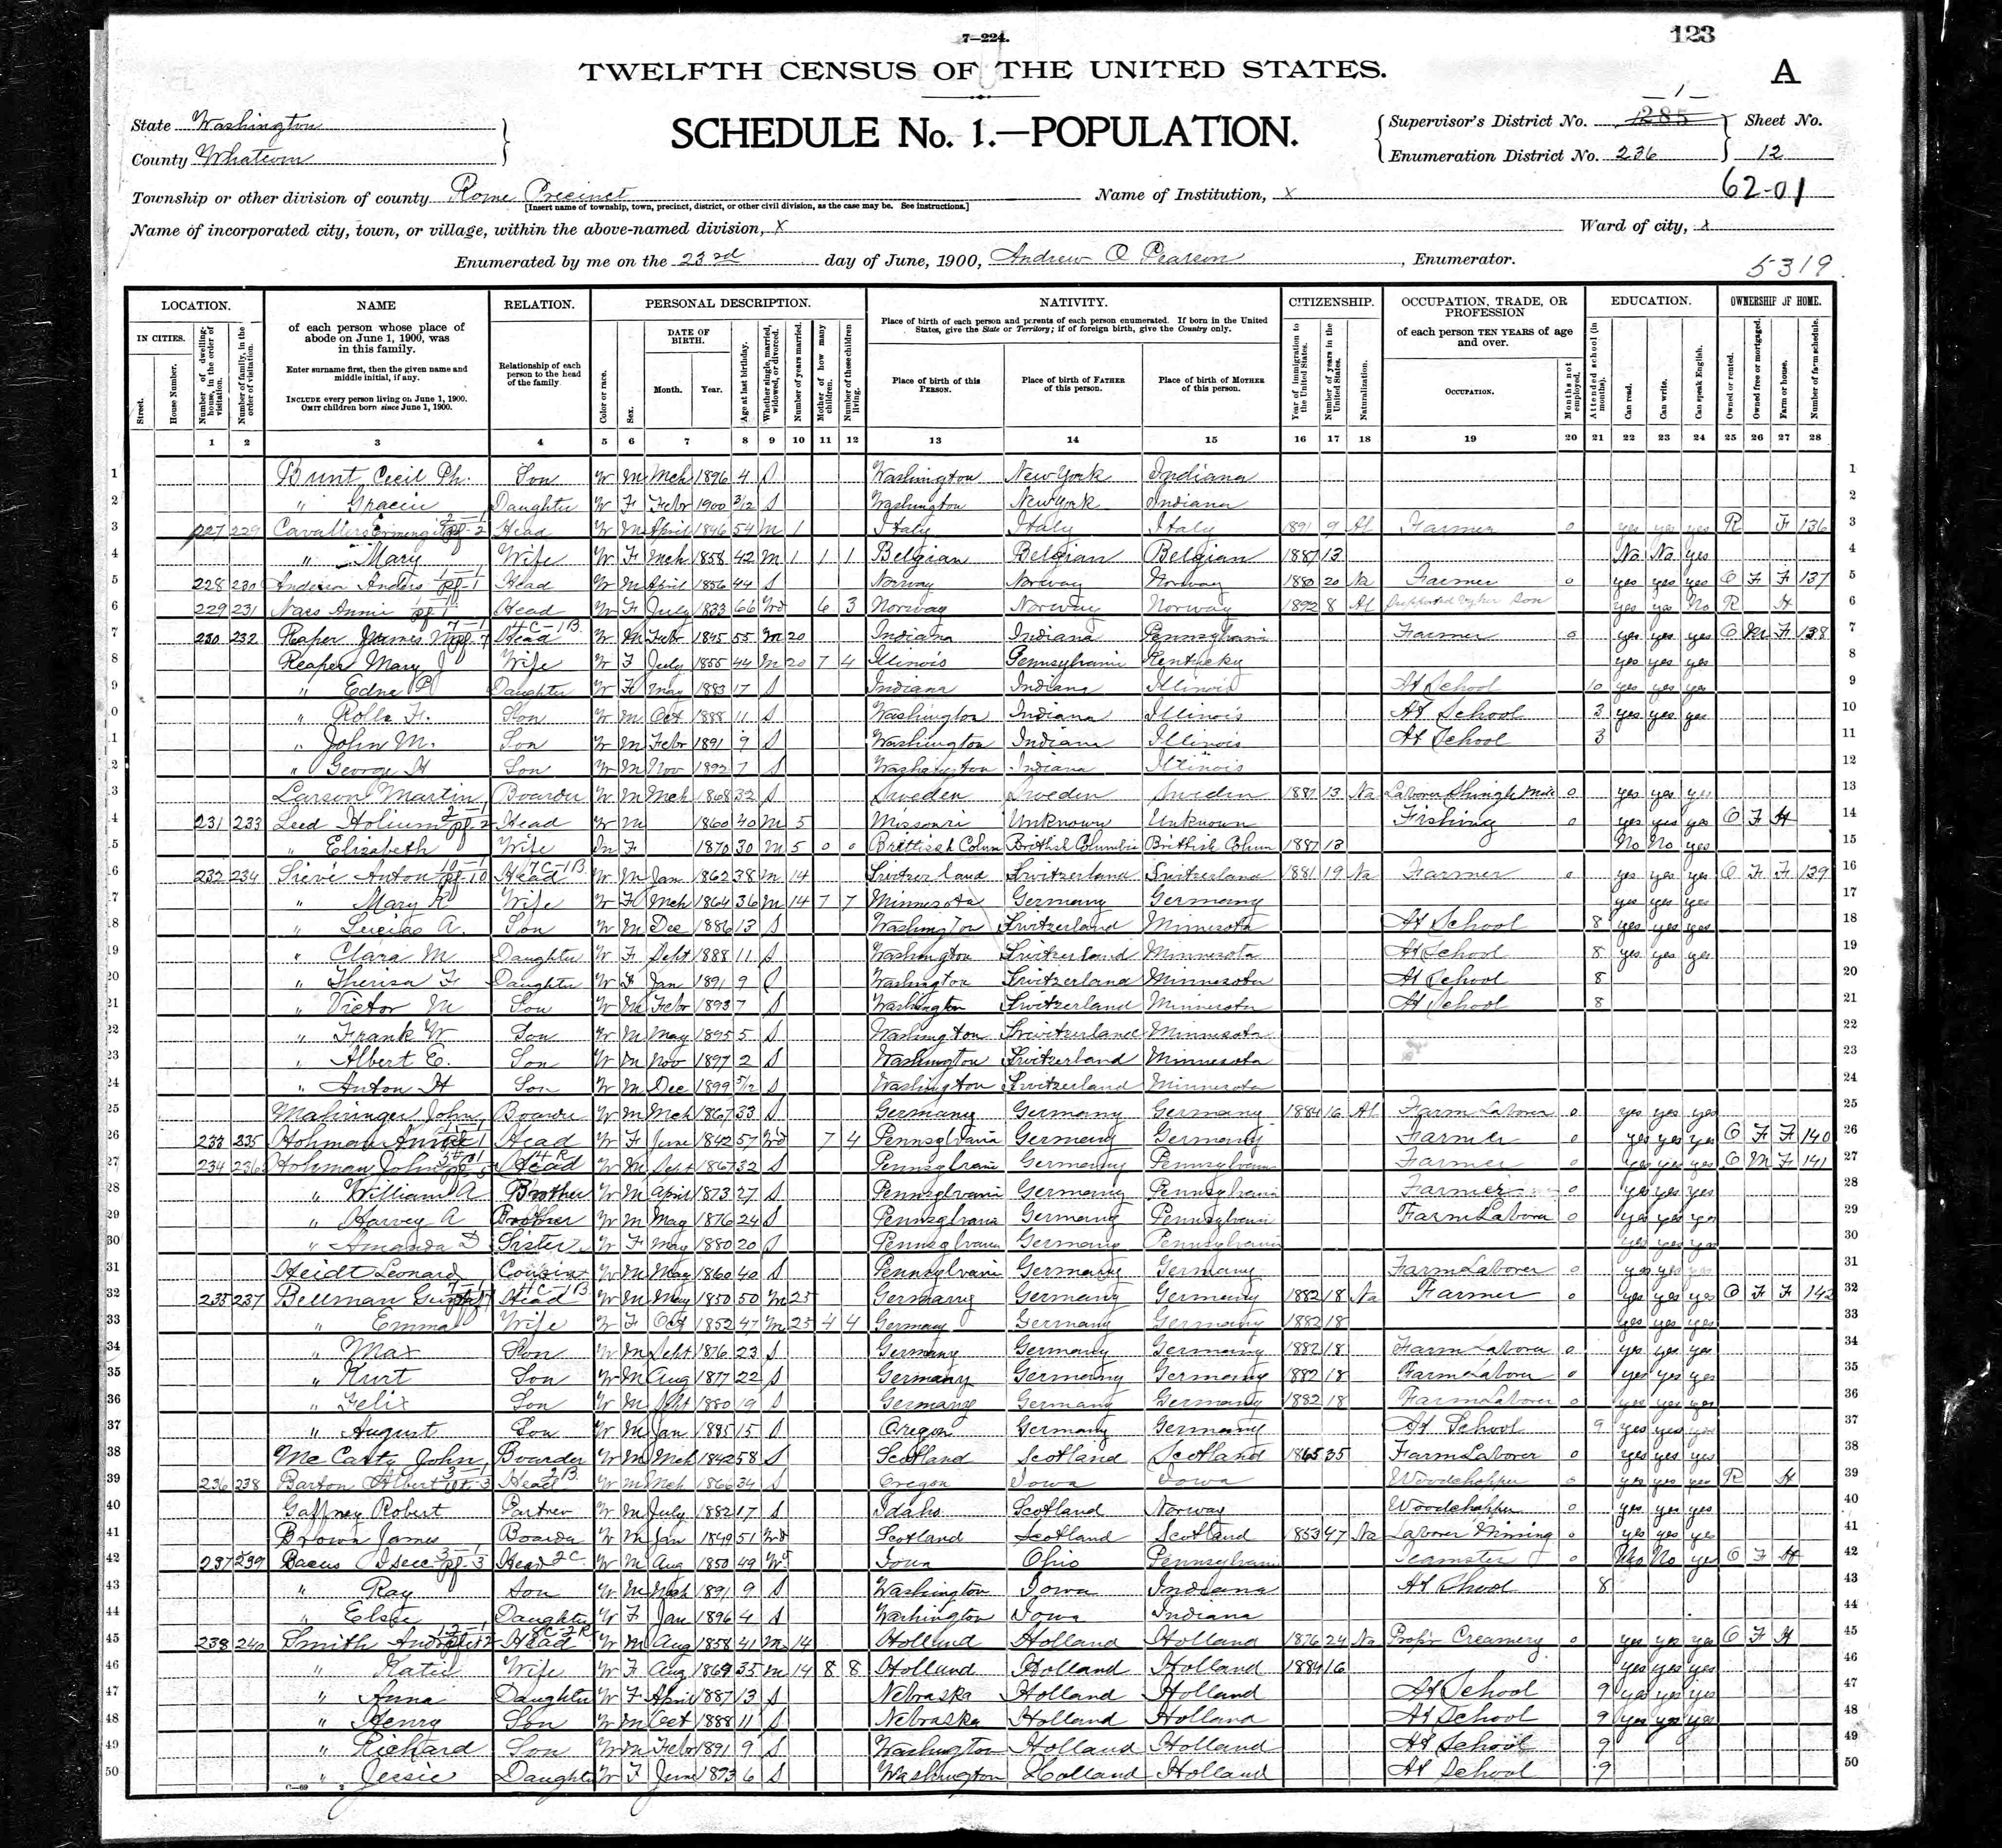 7—224.
123
TWELFTH CENSUS OF THE UNITED STATES.
A
State Washington
County Whatcom
SCHEDULE No. 1.—POPULATION.
Supervisor's District No. 285 1 Sheet No.
Enumeration District No. 236 12
62-01
Township or other division of county Rome Precinct Name of Institution, x
[Insert name of township, town, precinct, district, or other civil division, as the case may be. See instructions.]
Name of incorporated city, town, or village, within the above-named division, x Ward of city, x
Enumerated by me on the 23rd day of June, 1900, Andrew O Pearson, Enumerator.
5319
LOCATION. NAME RELATION. PERSONAL DESCRIPTION. NATIVITY. CITIZENSHIP. OCCUPATION, TRADE, OR PROFESSION EDUCATION. OWNERSHIP OF HOME.
IN CITIES. Street. House Number. Number of dwelling-house, in the order of visitation. Number of family, in the order of visitation.
of each person whose place of abode on June 1, 1900, was in this family.
Enter surname first, then the given name and middle initial, if any.
INCLUDE every person living on June 1, 1900. OMIT children born since June 1, 1900.
Relationship of each person to the head of the family.
Color or race. Sex. DATE OF BIRTH. Month. Year. Age at last birthday. Whether single, married, widowed, or divorced. Number of years married. Mother of how many children. Number of these children living.
Place of birth of each person and parents of each person enumerated. If born in the United States, give the State or Territory; if of foreign birth, give the Country only.
Place of birth of this PERSON. Place of birth of FATHER of this person. Place of birth of MOTHER of this person.
Year of immigration to the United States. Number of years in the United States. Naturalization.
of each person TEN YEARS of age and over.
OCCUPATION. Months not employed.
Attended school (in months). Can read. Can write. Can speak English.
Owned or rented. Owned free or mortgaged. Farm or house. Number of farm schedule.
1 2 3 4 5 6 7 8 9 10 11 12 13 14 15 16 17 18 19 20 21 22 23 24 25 26 27 28
1 Brint Cecil Ph. Son W M Mch 1896 4 S Washington New York Indiana 1
2 " Gracie Daughter W F Febr 1900 3/12 S Washington New York Indiana 2
227 229 Head W M April 1846 54 M 1 Italy Italy Italy 1891 9 Al Farmer 0 yes yes yes R F 136 3
4 " Mary Wife W F Mch 1858 42 M 1 1 1 Belgian Belgian Belgian 1887 13 No No yes 4
5 228 230 Anders Head W M April 1856 44 S Norway Norway Norway 1880 20 Na Farmer 0 yes yes yes O F F 137 5
6 229 231 Nass Annie Head W F July 1833 66 Wd 6 3 Norway Norway Norway 1892 8 Al Supported by her Son yes yes No R H 6
7 230 232 Reaper James Head W M Febr 1845 55 M 20 Indiana Indiana Pennsylvani Farmer 0 yes yes yes O M F 138 7
8 Reaper Mary J Wife W F July 1855 44 M 20 7 4 Illinois Pennsylvani Kentucky yes yes yes 8
9 " Edna P Daughter W F May 1883 17 S Indiana Indiana Illinois At School 10 yes yes yes 9
10 " Rolla F. Son W M Oct 1888 11 S Washington Indiana Illinois At School 3 yes yes yes 10
11 " John M. Son W M Febr 1891 9 S Washington Indiana Illinois At School 3 11
12 " George H Son W M Nov 1892 7 S Washington Indiana Illinois 12
13 Larson Martin Boarder W M Mch 1868 32 S Sweden Sweden Sweden 1887 13 Na Laborer Shingle Mill 0 yes yes yes 13
14 231 233 Leed Head W M 1860 40 M 5 Missouri Unknown Unknown Fishing 0 yes yes yes O F H 14
15 " Elizabeth Wife In F 1870 30 M 5 0 0 Brittish Colum Brittish Columbia Brittish Colum 1887 13 No No yes 15
16 232 234 Sieve Anton Head W M Jan 1862 38 M 14 Switzerland Switzerland Switzerland 1881 19 Na Farmer 0 yes yes yes O F F 139 16
17 " Mary K Wife W F Mch 1864 36 M 14 7 7 Minnesota Germany Germany yes yes yes 17
18 " A. Son W M Dec 1886 13 S Washington Switzerland Minnesota At School 8 yes yes yes 18
19 " Clara M Daughter W F Sept 1888 11 S Washington Switzerland Minnesota At School 8 yes yes yes 19
20 " Theresa F Daughter W F Jan 1891 9 S Washington Switzerland Minnesota At School 8 20
21 " Victor M Son W M Febr 1893 7 S Washington Switzerland Minnesota At School 8 21
22 " Frank W Son W M May 1895 5 S Washington Switzerland Minnesota 22
23 " Albert E. Son W M Nov 1897 2 S Washington Switzerland Minnesota 23
24 " Anton H Son W M Dec 1899 5/12 S Washington Switzerland Minnesota 24
25 Mahringer John Boarder W M Mch 1867 33 S Germany Germany Germany 1884 16 Al Farm Laborer 0 yes yes yes 25
26 233 235 Hohman Head W F June 1842 57 Wd 7 4 Pennsylvania Germany Germany Farmer 0 yes yes yes O F F 140 26
27 234 236 Hohman John Head W M Sept 1867 32 S Pennsylvani Germany Pennsylvani Farmer 0 yes yes yes O M F 141 27
28 " William A Brother W M April 1873 27 S Pennsylvani Germany Pennsylvani Farmer 0 yes yes yes 28
29 " Harvey A Brother W M May 1876 24 S Pennsylvania Germany Pennsylvani Farm Laborer 0 yes yes yes 29
30 " Amanda D Sister W F May 1880 20 S Pennsylvani Germany Pennsylvani yes yes yes 30
31 Heidt Leonard Cousin W M May 1860 40 S Pennsylvani Germany Germany Farm Laborer 0 yes yes yes 31
32 235 237 Bellman Head W M May 1850 50 M 25 Germany Germany Germany 1882 18 Na Farmer 0 yes yes yes O F F 142 32
33 " Emma Wife W F Oct 1852 47 M 25 4 4 Germany Germany Germany 1882 18 yes yes yes 33
34 " Max Son W M Sept 1876 23 S Germany Germany Germany 1882 18 Farm Laborer 0 yes yes yes 34
35 " Kurt Son W M Aug 1877 22 S Germany Germany Germany 1882 18 Farm Laborer 0 yes yes yes 35
36 " Felix Son W M Sept 1880 19 S Germany Germany Germany 1882 18 Farm Laborer 0 yes yes yes 36
37 " August Son W M Jan 1885 15 S Oregon Germany Germany At School 9 yes yes yes 37
38 Mc Carty John Boarder W M Mch 1842 58 S Scotland Scotland Scotland 1865 35 Farm Laborer 0 yes yes yes 38
39 236 238 Barton Albert Head W M Mch 1866 34 S Oregon Iowa Iowa Woodchopper 0 yes yes yes R H 39
40 Gaffney Robert Partner W M July 1882 17 S Idaho Scotland Norway Woodchopper 0 yes yes yes 40
41 Brown James Boarder W M Jan 1849 51 Wd Scotland Scotland Scotland 1853 47 Na Laborer Mining 0 yes yes yes 41
42 237 239 Bacus Head W M Aug 1850 49 Wd Iowa Ohio Pennsylvani Teamster 0 No No yes O F H 42
43 " Ray Son W M Mch 1891 9 S Washington Iowa Indiana At School 8 43
44 " Elsie Daughter W F Jan 1896 4 S Washington Iowa Indiana 44
45 238 240 Smith Head W M Aug 1858 41 M 14 Holland Holland Holland 1876 24 Na Propr Creamery 0 yes yes yes O F H 45
46 " Katie Wife W F Aug 1864 35 M 14 8 8 Holland Holland Holland 1884 16 yes yes yes 46
47 " Anna Daughter W F April 1887 13 S Nebraska Holland Holland At School 9 yes yes yes 47
48 " Henry Son W M Oct 1888 11 S Nebraska Holland Holland At School 9 yes yes yes 48
49 " Richard Son W M Febr 1891 9 S Washington Holland Holland At School 9 49
50 " Jessie Daughter W F June 1893 6 S Washington Holland Holland At School 9 50
C—69 2